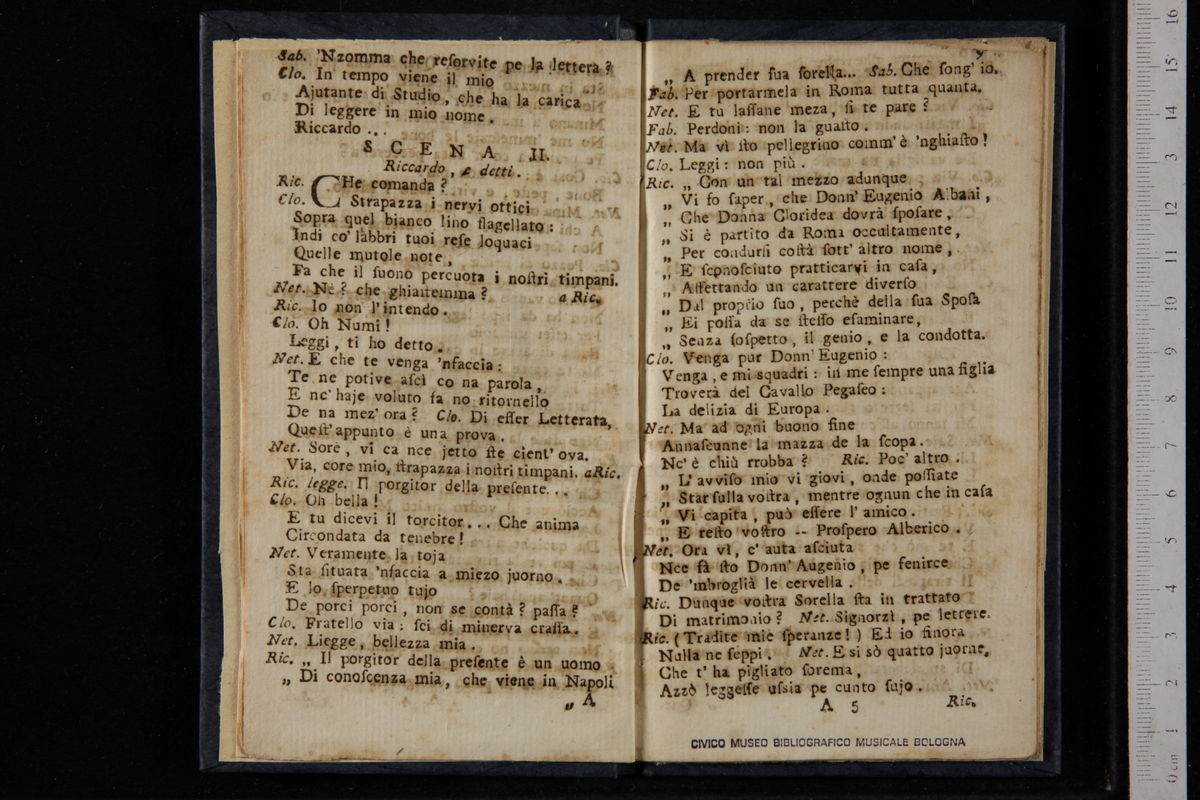 Sab. 'Nzomma che reſorvite pe la lettera?
Clo. In tempo viene il mio
Ajutante di Studio, che ha la carica
Di leggere in mio nome.
Riccardo ...
SCENA II.
Riccardo, e detti.
Ric. CHe comanda?
Clo. Strapazza i nervi ottici
Sopra quel bianco lino flagellato:
Indi co' labbri tuoi reſe loquaci
Quelle mutole note,
Fa che il ſuono percuota i noſtri timpani.
Net. Nè? che ghiaſtemma? a Ric.
Ric. Io non l'intendo.
Clo. Oh Numi!
Leggi, ti ho detto.
Net. E che te venga 'nfaccia:
Te ne potive aſcì co na parola,
E nc' haje voluto fa no ritornello
De na mez' ora? Clo. Di eſſer Letterata,
Queſt' appunto è una prova.
Net. Sorè, vi ca nce jetto ſte cient' ova.
Via, core mio, ſtrapazza i noſtri timpani. a Ric.
Ric. legge. Il porgitor della preſente...
Clo. Oh bella!
E tu dicevi il torcitor... Che anima
Circondata da tenebre!
Net. Veramente la toja
Sta ſituata 'nfaccia a miezo juorno.
E lo ſperpetuo tujo
De porci porci, non se contà? paſſa?
Clo. Fratello via: ſei di minerva craſſa.
Net. Liegge, bellezza mia.
Ric. „ Il porgitor della preſente è un uomo
„ Di conoſcenza mia, che viene in Napoli
„ A
„ A prender ſua ſorella... Sab. Che ſong' io.
Fab. Per portarmela in Roma tutta quanta.
Net. E tu laſſane meza, ſi te pare?
Fab. Perdoni: non la guaſto.
Net. Ma vì ſto pellegrino comm' è 'nghiaſto!
Clo. Leggi: non più.
Ric. „ Con un tal mezzo adunque
„ Vi fo ſaper, che Donn' Eugenio Albani,
„ Che Donna Cloridea dovrà ſpoſare,
„ Si è partito da Roma occultamente,
„ Per condurſi coſtà ſott' altro nome,
„ E ſconoſciuto pratticarvi in caſa,
„ Affettando un carattere diverſo
„ Dal proprio ſuo, perchè della ſua Spoſa
„ Ei poſſa da se ſteſſo eſaminare,
„ Senza ſoſpetto, il genio, e la condotta.
Clo. Venga pur Donn' Eugenio:
Venga, e mi squadri: in me ſempre una figlia
Troverà del Cavallo Pegaſeo:
La delizia di Europa.
Net. Ma ad ogni buono fine
Annaſcunne la mazza de la ſcopa.
Nc' è chiù rrobba? Ric. Poc' altro.
„ L' avviſo mio vi giovi, onde poſſiate
„ Star ſulla voſtra, mentre ognun che in caſa
„ Vi capita, può eſſere l' amico.
„ E reſto voſtro -- Proſpero Alberico.
Net. Ora vì, c' auta aſciuta
Nce fà ſto Donn' Augenio, pe fenirce
De 'mbroglià le cervella.
Ric. Dunque voſtra Sorella ſta in trattato
Di matrimonio? Net. Signorzì, pe lettere.
Ric. (Tradite mie ſperanze!) Ed io finora
Nulla ne ſeppi. Net. E si sò quatto juorne,
Che t' ha pigliato ſorema,
Azzò leggeſſe uſsia pe cunto ſujo.
A 5 Ric.
CIVICO MUSEO BIBLIOGRAFICO MUSICALE BOLOGNA